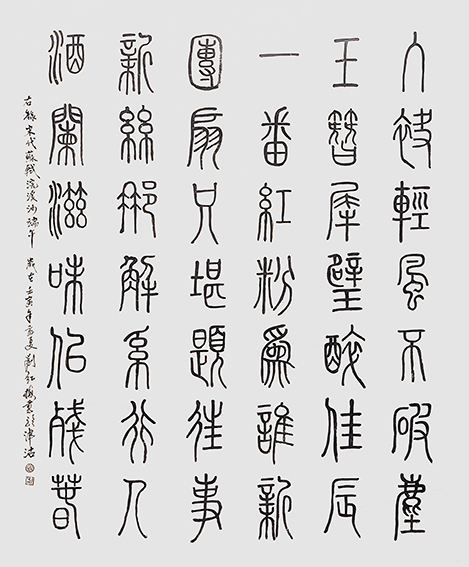 入袂輕風不破塵
玉簪犀璧醉佳辰
一番紅粉爲誰新
團扇只堪題往事
新絲那解系行人
酒闌滋味佀殘春
右錄宋代蘇軾浣溪沙端午 歲在壬寅年 劉紅 書於津沽